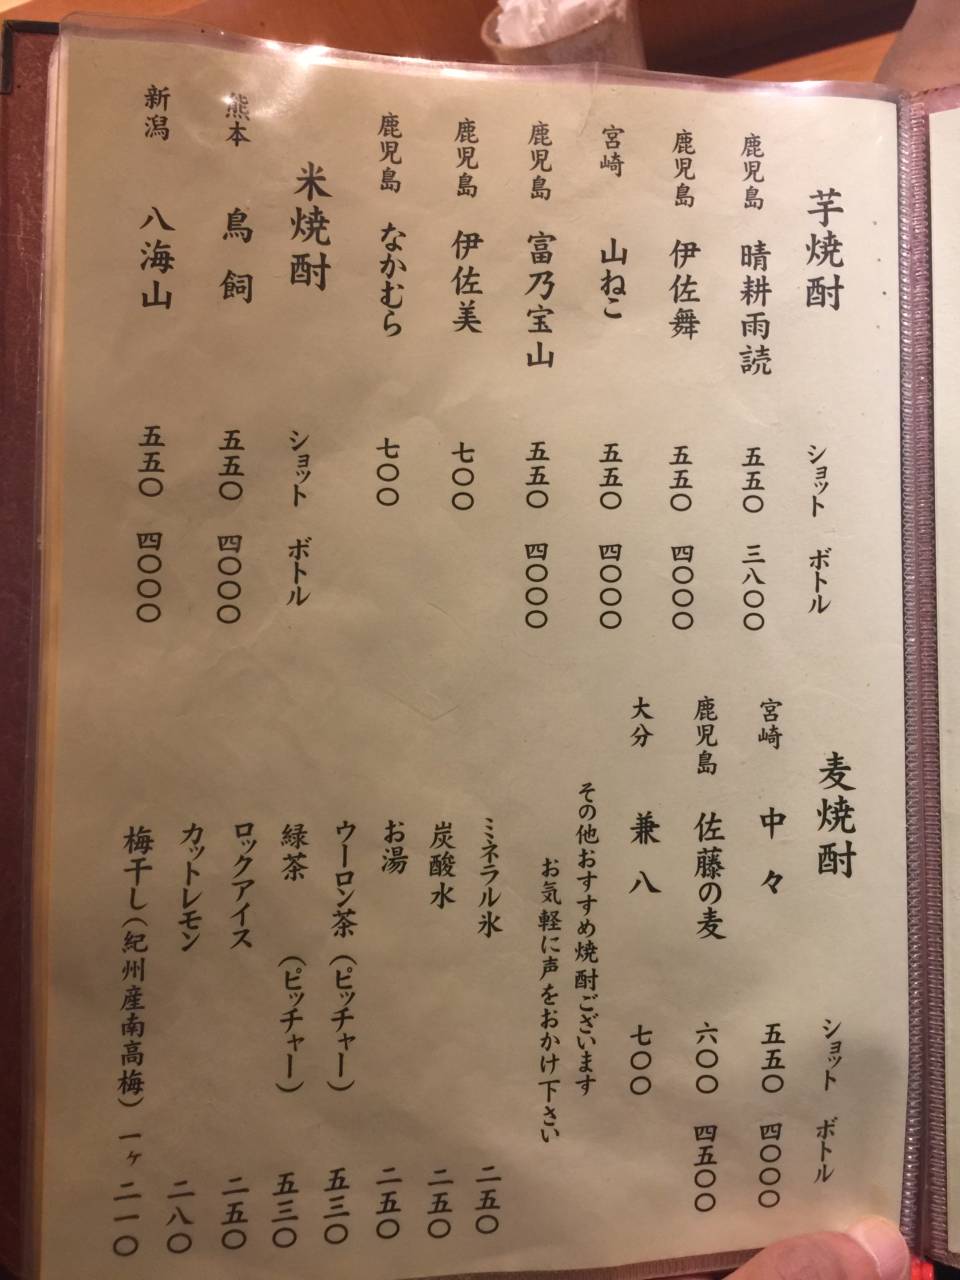 芋焼酎 ショット ボトル
鹿児島 晴耕雨読 五五〇 三八〇〇
鹿児島 伊佐舞 五五〇 四〇〇〇
宮崎 山ねこ 五五〇 四〇〇〇
鹿児島 富乃宝山 五五〇 四〇〇〇
鹿児島 伊佐美 七〇〇
鹿児島 なかむら 七〇〇
米焼酎 ショット ボトル
熊本 鳥飼 五五〇 四〇〇〇
新潟 八海山 五五〇 四〇〇〇
麦焼酎 ショット ボトル
宮崎 中々 五五〇 四〇〇〇
鹿児島 佐藤の麦 六〇〇 四五〇〇
大分 兼八 七〇〇
その他おすすめ焼酎ございます
お気軽に声をおかけ下さい
ミネラル氷 二五〇
炭酸水 二五〇
お湯 二五〇
ウーロン茶(ピッチャー) 五三〇
緑茶 (ピッチャー) 五三〇
ロックアイス 二五〇
カットレモン 二八〇
梅干し(紀州産南高梅) 一ヶ 二一〇